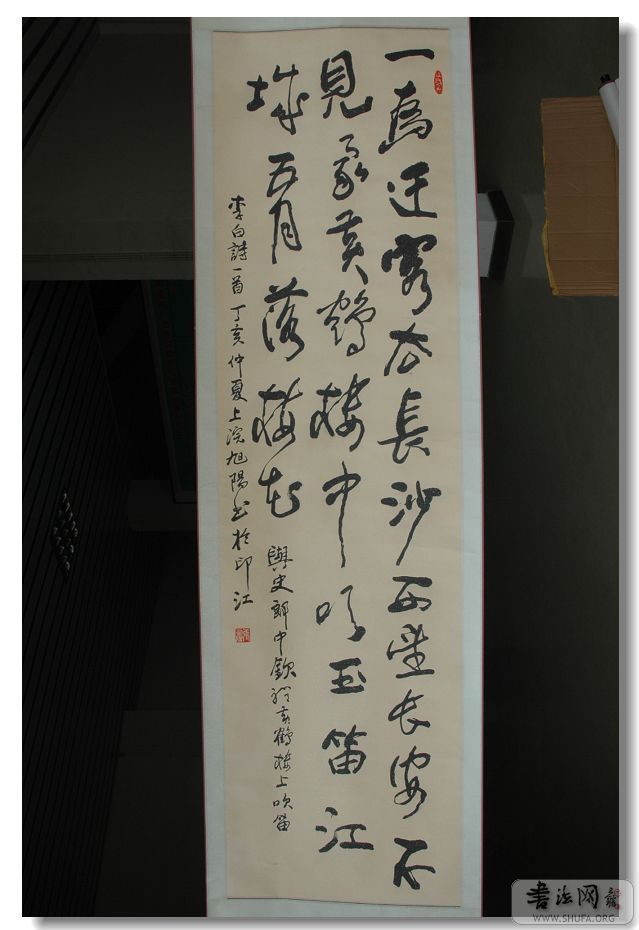 一為迁客去長沙西望长安不
見家黄鹤楼中吹玉笛江
城五月落梅花
與史郎中欽聽黄鶴楼上吹笛
李白詩一首丁亥仲夏上浣旭陽书於印江
書法网
WWW.SHUFA.ORG